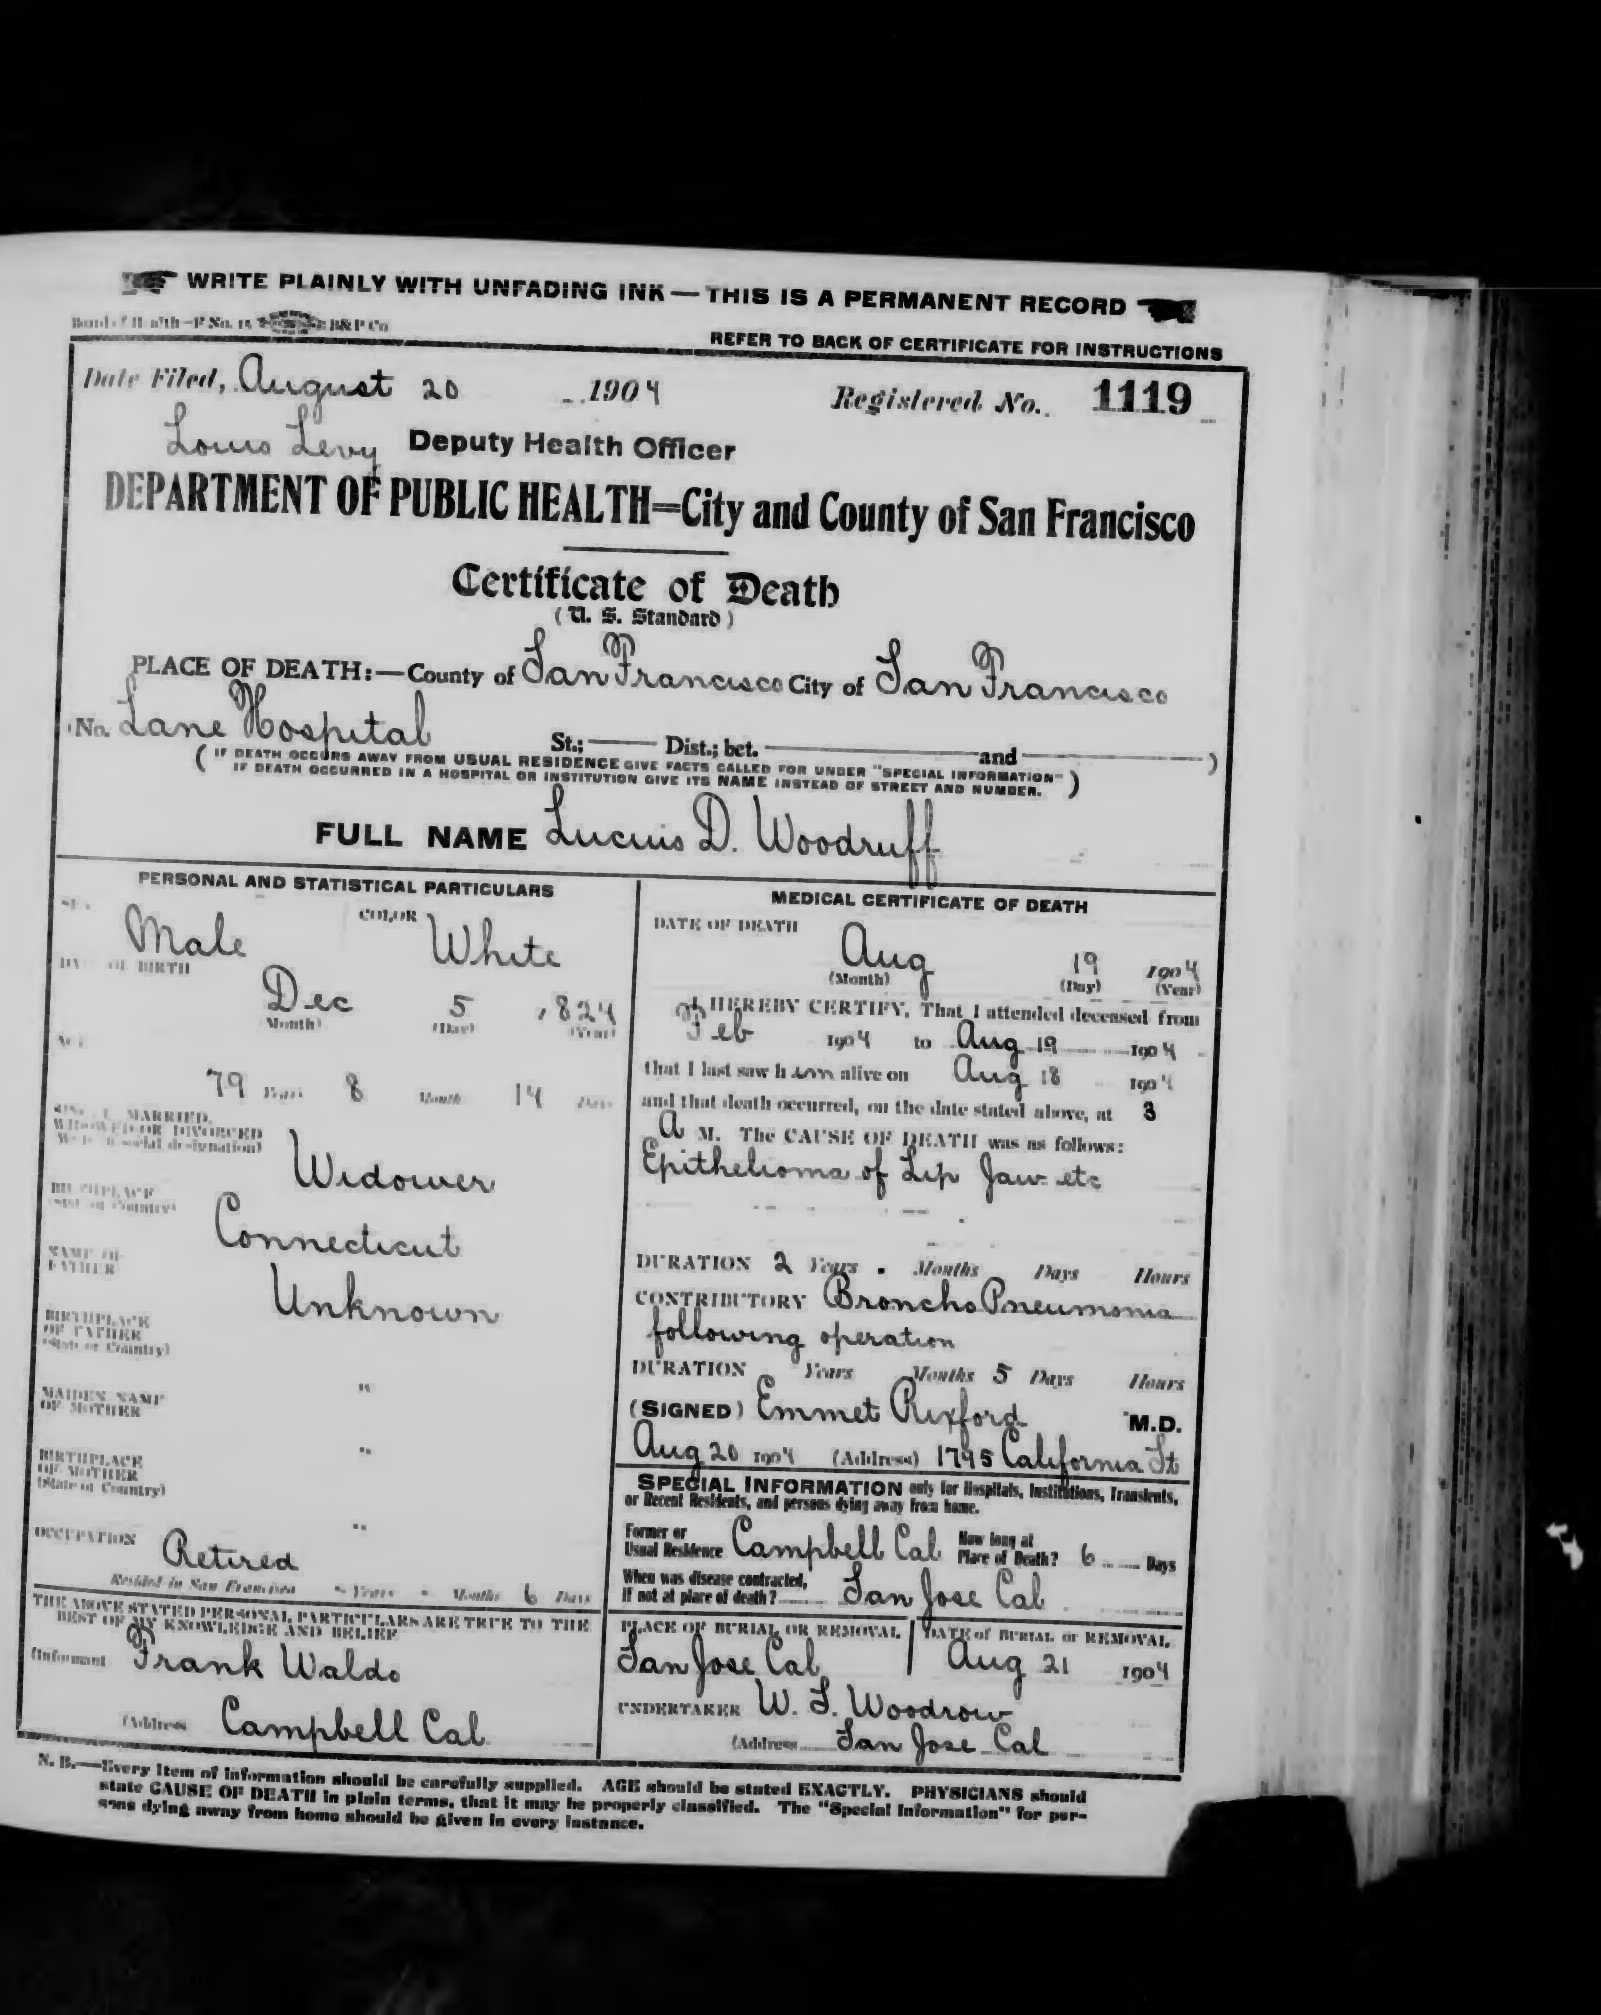 WRITE PLAINLY WITH UNFADING INK—THIS IS A PERMANENT RECORD
Board of Health—F No. 15 B&P Co
REFER TO BACK OF CERTIFICATE FOR INSTRUCTIONS
Date Filed, August 20 1904 Registered No. 1119
Louis Levy Deputy Health Officer
DEPARTMENT OF PUBLIC HEALTH=City and County of San Francisco
Certificate of Death
(U. S. Standard)
PLACE OF DEATH:—County of San Francisco City of San Francisco
(No. Lane Hospital St.; Dist.; bet. and )
(IF DEATH OCCURS AWAY FROM USUAL RESIDENCE GIVE FACTS CALLED FOR UNDER "SPECIAL INFORMATION"
IF DEATH OCCURRED IN A HOSPITAL OR INSTITUTION GIVE ITS NAME INSTEAD OF STREET AND NUMBER.)
FULL NAME Lucius D. Woodruff
PERSONAL AND STATISTICAL PARTICULARS
SEX Male COLOR White
DATE OF BIRTH
Dec 5 1824
(Month) (Day) (Year)
AGE
79 Years 8 Months 14 Days
SINGLE, MARRIED,
WIDOWED OR DIVORCED
(Write in social designation)
Widower
BIRTHPLACE
(State or Country)
Connecticut
NAME OF
FATHER
Unknown
BIRTHPLACE
OF FATHER
(State or Country)
"
MAIDEN NAME
OF MOTHER
"
BIRTHPLACE
OF MOTHER
(State or Country)
"
OCCUPATION Retired
Resided in San Francisco - Years - Months 6 Days
THE ABOVE STATED PERSONAL PARTICULARS ARE TRUE TO THE
BEST OF MY KNOWLEDGE AND BELIEF
(Informant Frank Waldo
(Address Campbell Cal
MEDICAL CERTIFICATE OF DEATH
DATE OF DEATH
Aug 19 1904
(Month) (Day) (Year)
I HEREBY CERTIFY, That I attended deceased from
Feb 1904 to Aug 19 1904
that I last saw him alive on Aug 18 1904
and that death occurred, on the date stated above, at 3
A M. The CAUSE OF DEATH was as follows:
Epithelioma of Lip Jaw etc
DURATION 2 Years Months Days Hours
CONTRIBUTORY Broncho Pneumonia
following operation
DURATION Years Months 5 Days Hours
(SIGNED) Emmet Rixford M.D.
Aug 20 1904 (Address) 1795 California St
SPECIAL INFORMATION only for Hospitals, Institutions, Transients,
or Recent Residents, and persons dying away from home.
Former or
Usual Residence Campbell Cal How long at
Place of Death? 6 Days
When was disease contracted,
If not at place of death? San Jose Cal
PLACE OF BURIAL OR REMOVAL DATE of BURIAL or REMOVAL
San Jose Cal Aug 21 1904
UNDERTAKER W. S. Woodrow
(Address San Jose Cal
N. B.—Every item of information should be carefully supplied. AGE should be stated EXACTLY. PHYSICIANS should
state CAUSE OF DEATH in plain terms, that it may be properly classified. The "Special Information" for per-
sons dying away from home should be given in every instance.